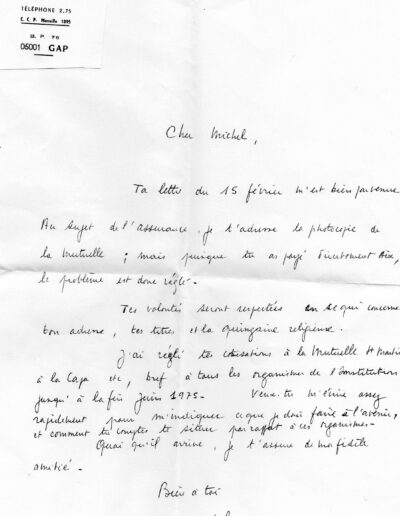 TÉLÉPHONE 2.75
C. C. P. Marseille 1895
B. P. 76
05001 GAP
Cher Michel,
Ta lettre du 15 février m'est bien parvenue
Au sujet de l'assurance, je t'adresse la photocopie de
la Mutuelle ; mais puisque tu as payé directement Aix,
le problème est donc réglé -
Tes volontés seront respectées en ce qui concerne
ton adresse, tes titres et la quinzaine religieuse.
J'ai réglé tes cotisations à la Mutuelle St Martin
à la Capa etc, bref à tous les organismes de l'Institution
jusqu'à la fin juin 1975 - Veux-tu m'écrire assez
rapidement pour m'indiquer ce que je dois faire à l'avenir,
et comment tu comptes te situer par rapport à ces organismes -
Quoi qu'il arrive, je t'assure de ma fidèle
amitié -
Bien à toi